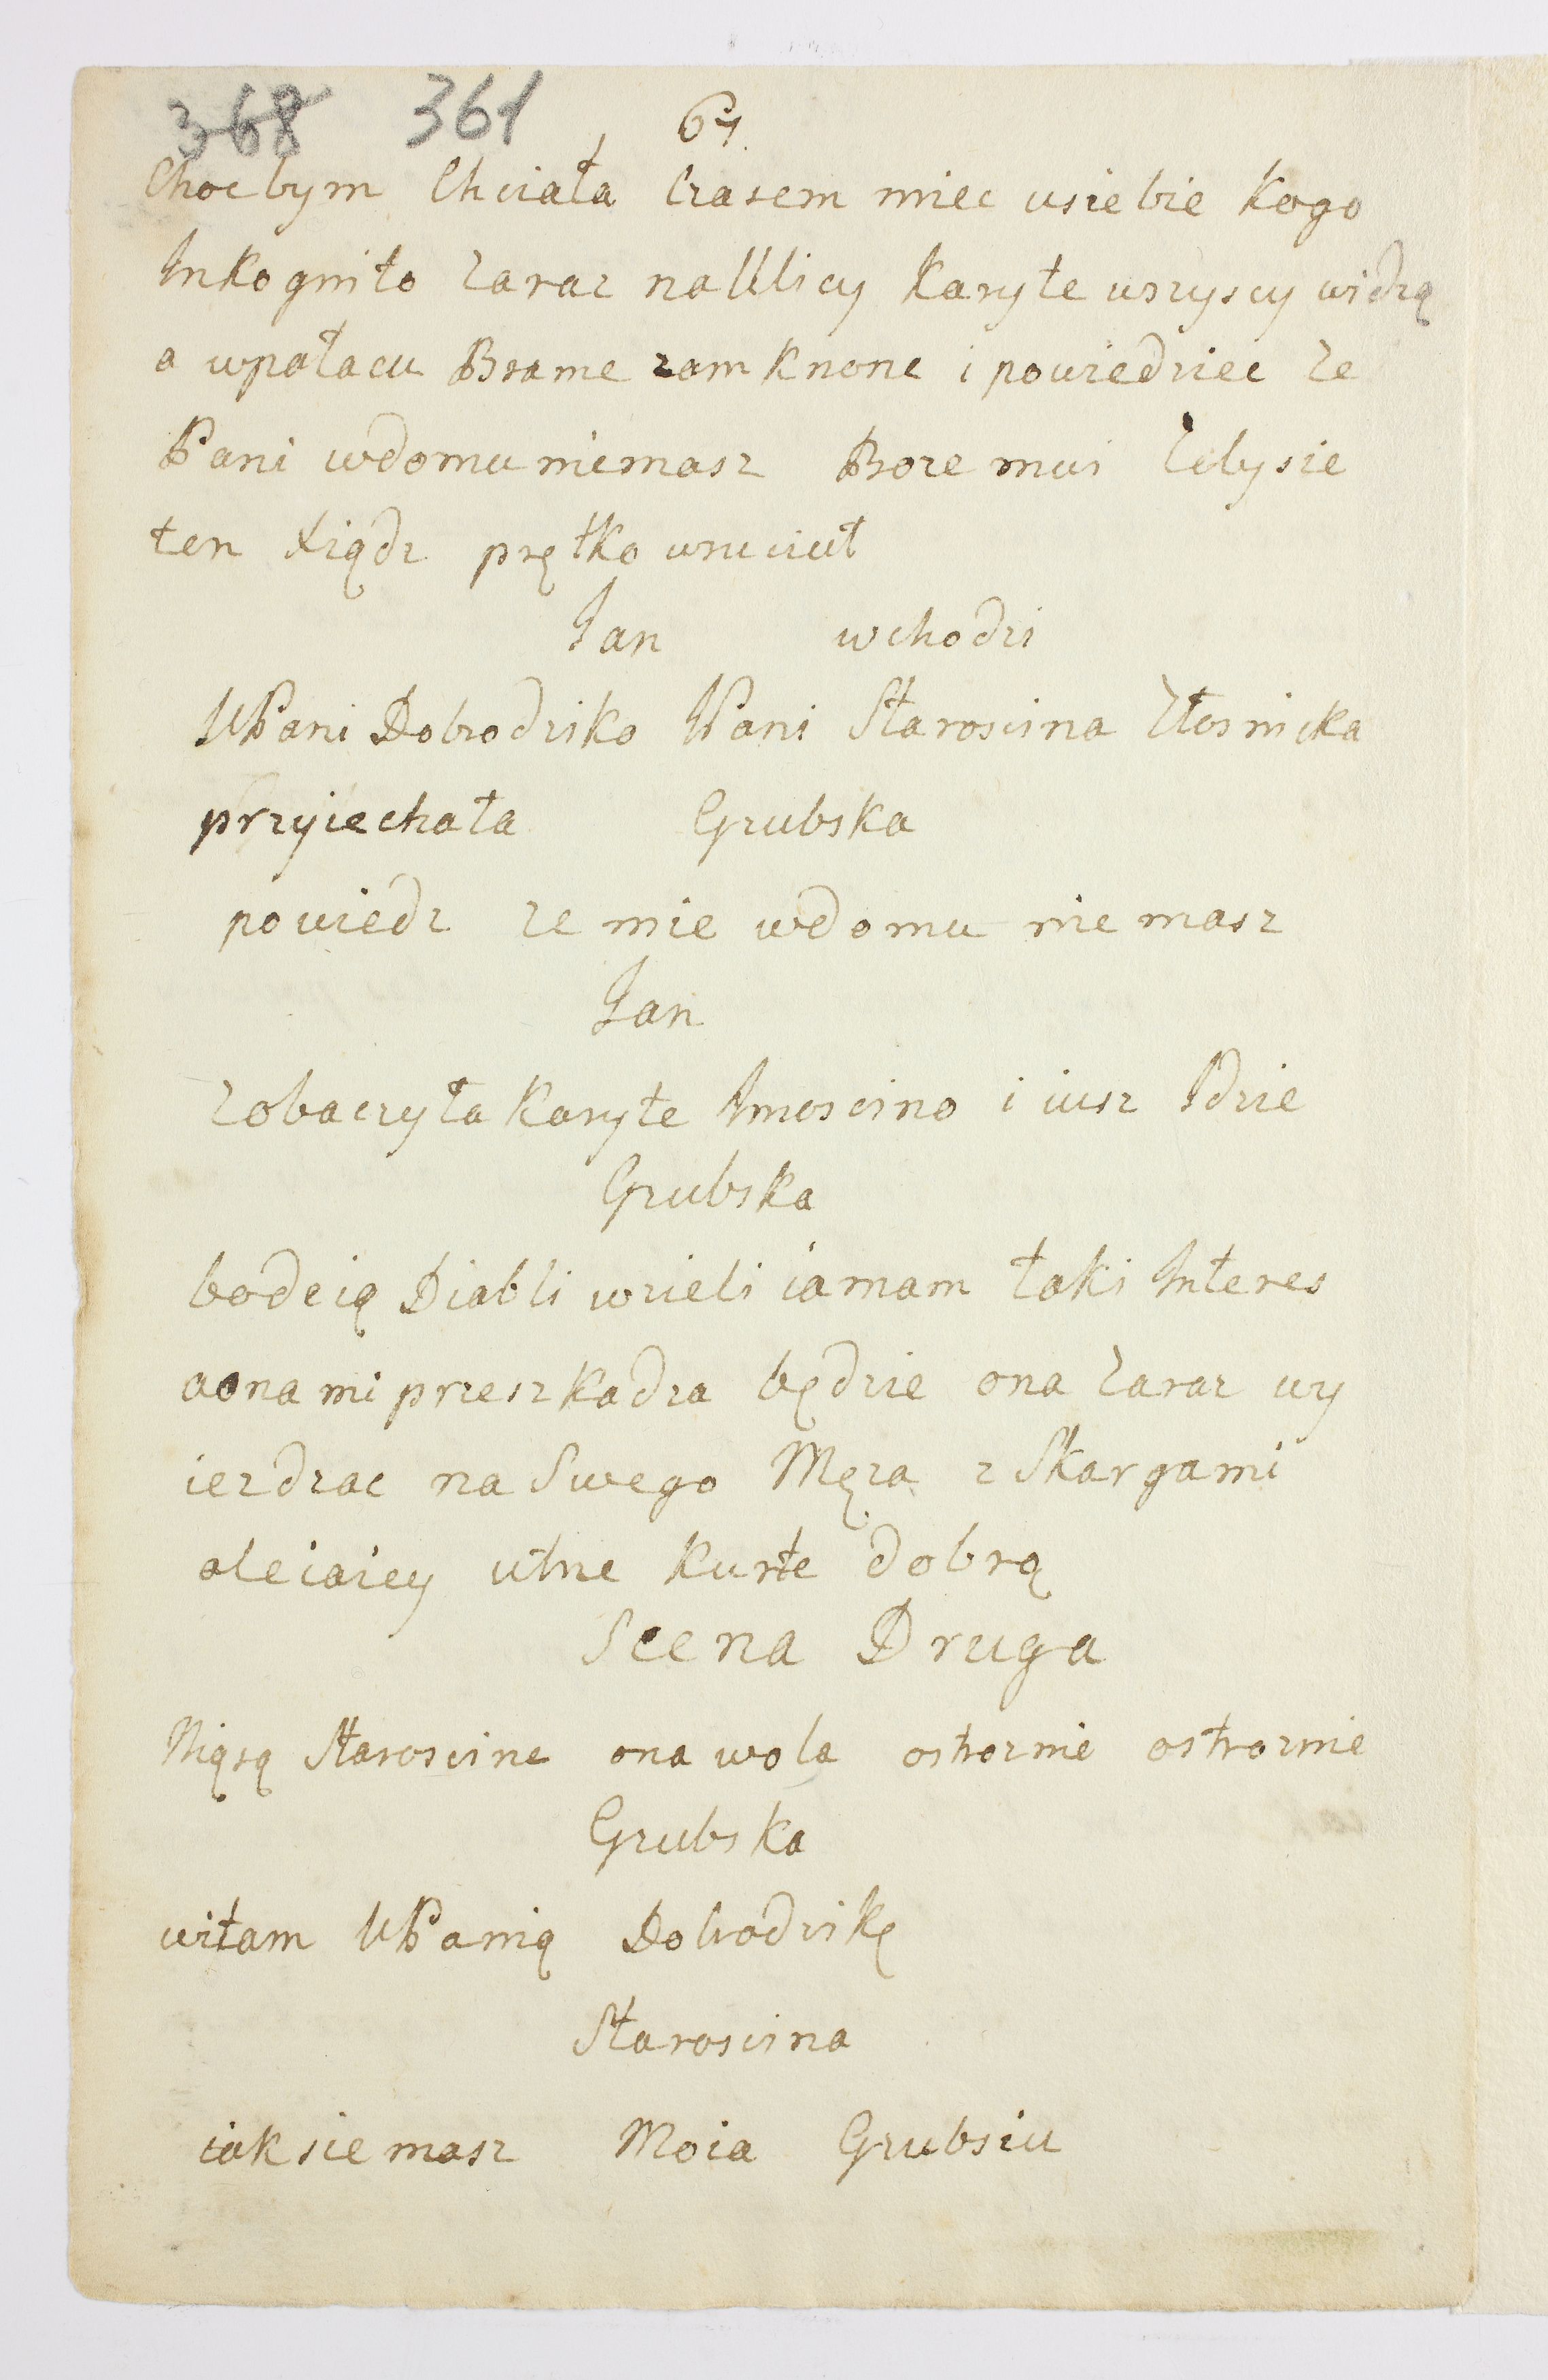 368 361 67
Chocbym Chciała Czasem miec usiebie kogo
Inkognito zaraz naUlicy karyte wszyscy widzą
a wpałacu Brame zamknone i powiedziec ze
Pani wdomu niemasz Boze mui zebysie
ten Xiądz prętko wruciuł
Jan wchodzi
WPani Dobrodziko JPani Staroscina Złosnicka
przyiechała Grubska
powiedz ze mie wdomu nie masz
Jan
zobaczyła karyte Imoscino i iusz Idzie
Grubska
bodcią Diabli wzieli iamam taki Interes
aona mi przeszkadza będzie ona zaraz wy
iezdzac na Swego Męza z Skargami
aleiaiey utne kurte dobrą
Scena Druga
Niąsą Staroscine ona wola ostroznie ostroznie
Grubska
witam WPanią Dobrodzikę
Staroscina
iaksie masz Moia Grubsiu